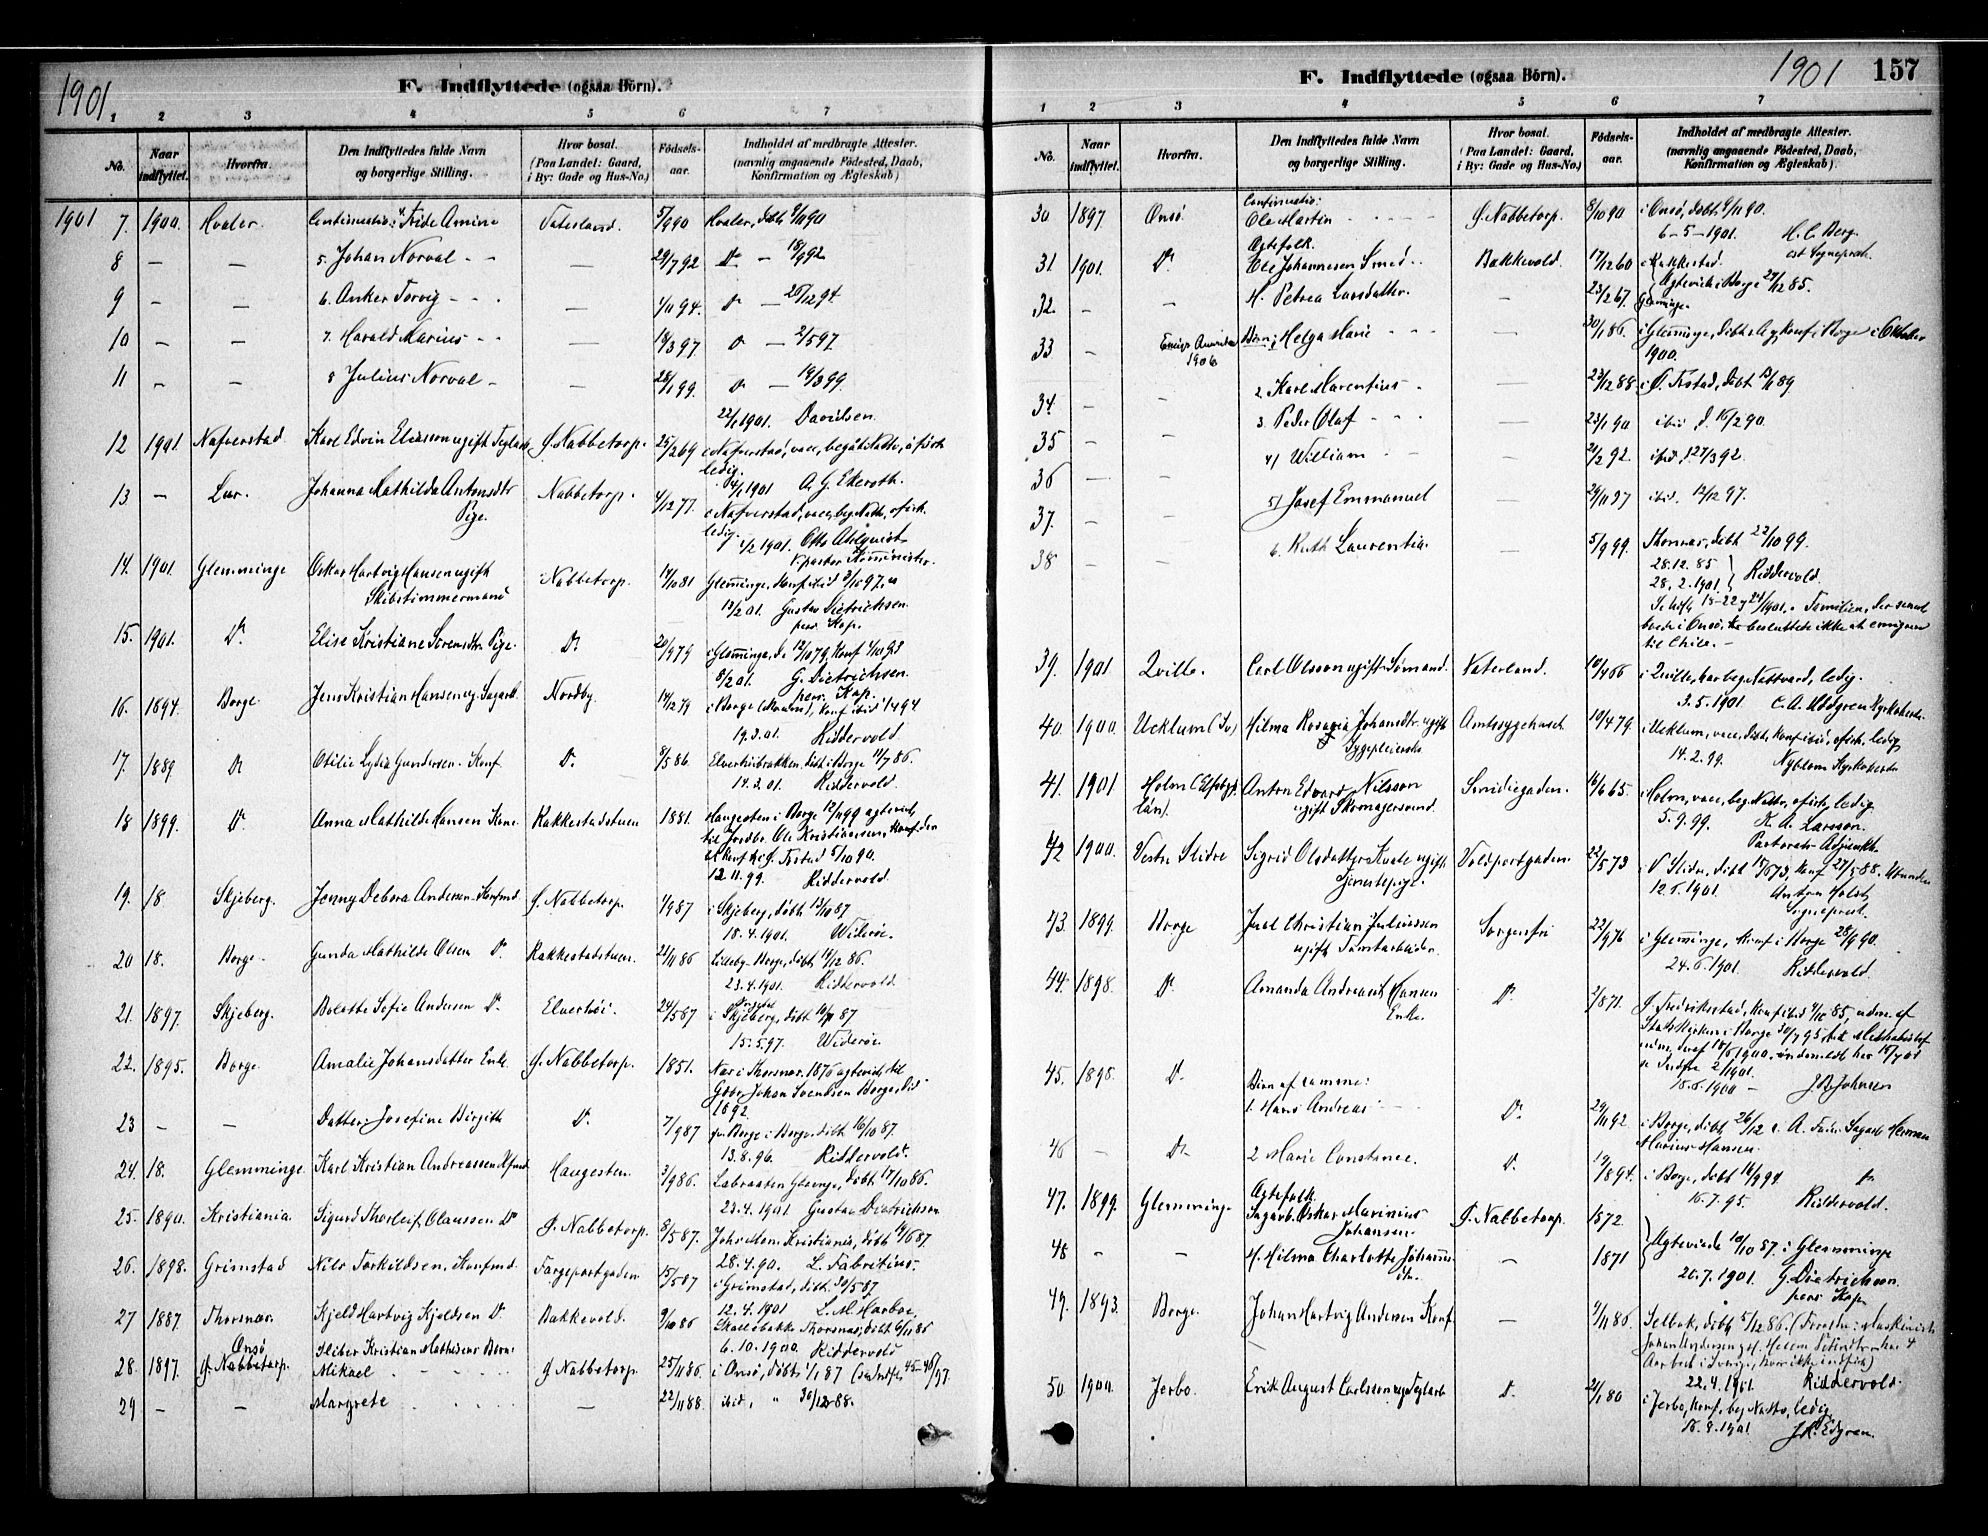 1901
F. Indflyttede (ogsaa Börn).
1 2 3 4 5 6 7
No.
Naar indflyttet.
Hvorfra.
Den Indflyttedes fulde Navn
og borgerlige Stilling.
Hvor bosat.
(Paa Landet: Gaard,
i By: Gade og Hus-No.)
Födsels-
aar.
Indholdet af medbragte Attester.
(navnlig angaaende Födested, Daab,
Konfirmation og Ægteskab)
1901 7. 1900. Hvaler. Continuatio: Fride Amine Vaterland. 5/9 90 Hvaler, döbt 9/11 90
8 — — 5. Johan Norval — 29/7 92 Do — 18/9 92
9 — — 6. Anker Torvig — 4/11 94. Do — 26/12 94.
10 — — 7. Harald Marius — 18/3 97 Do — 2/5 97
11 — — 8 Julius Norval — 28/1 99. Do — 14/3 99.
22/1 1901. Davidsen.
12 1901. Nafverstad Karl Edvin Eliasson ugift Teglarb. Ö. Nabbetorp. 25/2 69 i Nafverstad, vacc,
ledig.
1901 A. G. Ekeroth.
13 — Lur. Johanna Mathilda Antonsdtr Nabbetorp. 4/12 77. i Nafverstad, vacc, beg. Nattv,
Pige.
ledig. 1/2 1901. Otto Ahlquist
V. pastor Komminister.
14. 1901. Glemminge Oskar Hartvig Hansen ugift Nabbetorp. 14/10 81 Glemminge, Konf ibid 3/10 97.
Skibstimmermand
13/2 01. Gustav Dietrichsen.
pers. Kap.
15. 1901. Do Elise Kristiane Sorensdtr Pige. Do 20/9 79 i Glemminge, d. 12/10 79, Konf 1/10 93
8/2 01. G. Dietrichsen.
pers. Kap.
16. 1894. Borge Jens Kristian Hansen ug. Sagarb. Nordby. 14/12 79 i Borge
19.3.01. Riddervold.
17. 1889 Do Otilie Lydia Gundersen. Konf. Do. 8/5 86 döbt i Borge 11/7 86.
14.3.01. Riddervold.
18 1899. Do. Anna Mathilde Hansen Kone Rakkestadstuen 1881. Haugesten i Borge 12/11 99 ægteviet
til Ole Kristiansen,
Konf
12.11.99. Riddervold.
19. 18 Skjeberg. Jenny Debora Andersen. Konfmd. Ö. Nabbetorp. 1/9 87 i Skjeberg, döbt 23/10 87
18.4.1901. Wideröe.
20 18. Borge. Gunda Mathilde Olsen Do. Rakkestadstuen. 21/11 86 Lilleby Borge, döbt 11/12 86.
23.4.1901. Riddervold.
21. 1897. Skjeberg. Bolette Sofie Andersen Do. Elverhöi. 24/5 87 i Skjeberg, döbt 10/7 87
15.5.97. Wideröe.
22. 1895. Borge Amalie Johansdatter Enke Ö. Nabbetorp. 1851. Nær i Thorsnæs. 1876 ægteviet til
Gbbr. Johan Svendsen Borge, död
1892.
23 — — Datter: Josefine Birgitte Do. 7/9 87 Borge i Borge, döbt 16/10 87.
13.8.96. Riddervold.
24. 18. Glemminge. Karl Kristian Andreassen Konfmd Haugesten 3/9 86. Labraaten Glemge, döbt 17/10 86.
23.4.1901 Gustav Dietrichsen
25. 1890. Kristiania. Sigurd Thorleif Claussen Do Ö. Nabbetorp. 8/5 87. Kristiania, döbt 14/6 87.
28.4.90. L. Fabritius.
26. 1898. Grimstad Nils Torkildsen. Konfmd. Færgeportgaden 15/5 87 i Grimstad, döbt. 30/5 87.
12.4.1901 L. M. Harboe.
27 1887. Thorsnæs. Kjeld Hartvig Kjeldsen Do Bakkevold. 9/10 86 Skallebakke Thorsnæs, döbt 6/11 86
6.10.1900. Riddervold
Onsö Sliber Kristian Mathisens Börn:
28. 1897. Ö. Nabbetorp. Mikael Ö Nabbetorp 25/11 86. i Onsö, döbt 1/1 87 (se Indfl. 45-46/97.
29 — — Margrete — 22/11 88. ibid, " 30/12 88.
F. Indflyttede (ogsaa Börn).
1901 157
1 2 3 4 5 6 7
No.
Naar indflyttet.
Hvorfra.
Den Indflyttedes fulde Navn
og borgerlige Stilling.
Hvor bosat.
(Paa Landet: Gaard,
i By: Gade og Hus-No.)
Födsels-
aar.
Indholdet af medbragte Attester.
(navnlig angaaende Födested, Daab,
Konfirmation og Ægteskab).
Continuatio:
30 1897 Onsö. Ole Martin Ö. Nabbetorp. 8/10 90 i Onsö, döbt 9/11 90.
6-5-1901. H. C. Berg.
Sogneprest.
Ægtefolk.
31. 1901. Do Ole Johannesen Smed Bakkevold. 17/12 60 i Rakkestad.
Ægteviede i Borge 27/12 85.
32. — H. Petrea Larsdatter. 23/2 67. Glemminge.
33 — Emigr. Amerika
1906
Börn: 1 Helga Marie — 30/1 86. i Glemminge, döbt Konf i Borge i Oktober
1900.
34. — 2 Karl Marentius — 23/12 88 i Ö. Frstad, döbt 89
35 — 3 Peder Olaf 23/1 90 ibid d. 16/2 90.
36 — 4) William — 21/2 92. ibid, 27/3 92.
37. — 5) Josef Emmanuel — 26/11 97 ibid. 12/12 97.
38 6. Ruth Laurentia. — 5/9 99. Thorsnæs, döbt 22/10 99.
28.12.85
28.2.1901. Riddervold.
Se Udfl. 18-22 1901. Familien,
boede i Onsö, besluttede ikke at emigrere
til Chile.—
39. 1901. Qville. Carl Olsson ugift Sömand. Vaterland. 18/4 66 i Qville, har beg. Nattvard, ledig.
3.5.1901 C. A. Uddgren Kyrkoherde.
40. 1900. Ucklum (Sv) Hilma Rosaria Johansdtr ugift Amtssygehuset 10/4 79. i Ucklum, vacc, döbt, konf ibid, ledig
Sygepleierske
14.2.99. Nyblom Kyrkoherde
41. 1901. Holm (Elfsbgs Anton Edvard Nilsson Smediegaden. 16/6 65. i Holm, vacc, beg. Nattv, ledig.
län). ugift Skomagersvend.
5.9.99. K. A. Larsson.
Pastorats Adjunkt.
42 1900. Vestre Slidre Sigrid Olsdatter Kvale ugift Voldportgaden. 22/5 73 i V Slidre, döbt 15/6 73, Konf 27/5 88.
Tjenestepige.
12.6.1901. Holst,
Sogneprest.
43. 1899. Borge Juel Christian Juliussen Sorgenfri 22/9 76 i Glemminge, Konf i Borge 28/9 90.
ugift Tomtarbeider.
24.6.1901. Riddervold.
44. 1898. Do. Amanda Andreasdtr Hansen Do. 2/8 71. Ö. Fredrikstad, Konf ibid 4/10 85, udm. af
Enke.
Statskirken i Borge 30/7 95
1900
18.6.1900 — J. B. Johnsen
45. 1898. Do. Börn af samme:
1. Hans Andreas Do. 29/11 92. i Borge, döbt 26/12 s. A. Fader Sagarb Herman
Marius Hansen.
46 — Do 2 Marie Constance. Do. 19/8 94. i Borge, döbt 16/9 94 Do
16.7.95. Riddervold.
Ægtefolk.
47. 1899. Glemminge Sagarb. Oskar Marinius Ö. Nabbetorp. 1872.
Johansen
48 — — H. Hilma Charlotte Johannes- — 1871 Ægteviede 10/10 87. i Glemminge
dtr.
20.7.1901. G. Dietrichsen.
pers. Kap.
49. 1893. Borge. Johan Hartvig Andersen Konf. — 9/11 86. Selbak, döbt 5/12 86. (Forældre: Maskinist
Johan Andersen
Arbeid i Sverige, hvor ikke indskr.)
22.4.1901. Riddervold.
50. 1900. Jerbo. Erik August Carlsson ug Teglarb Do. 21/1 80 i Jerbo, Konf, beg Nattv, ledig.
16.8.1901. Edgren.